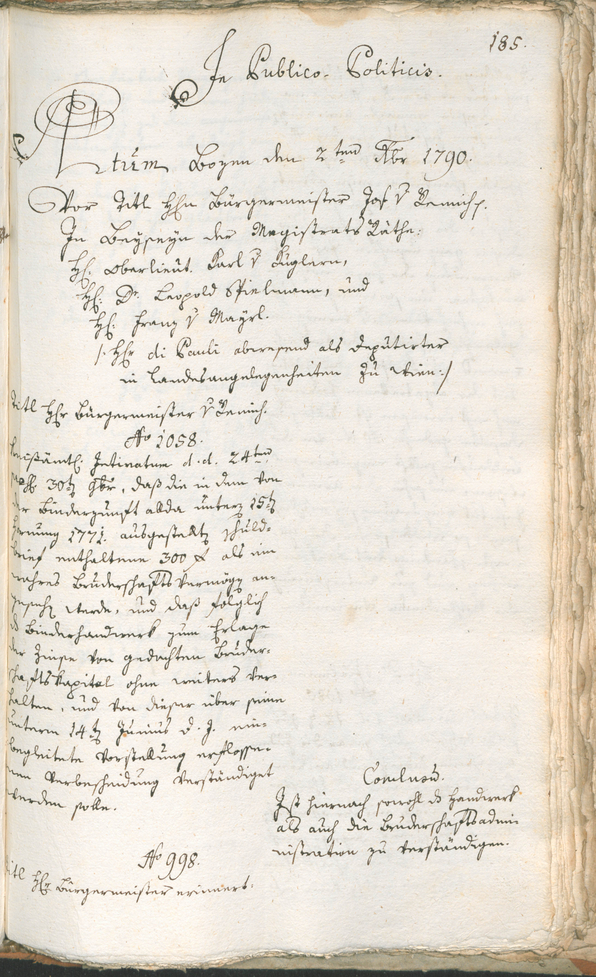 185.
In Publico-Politicis.
Actum Bozen den 2ten Xbr 1790.
Vor Titl Hhn Bürgermeister Jos. v Remich.
In Beyseyn der Magistrats Räthe:
Hh: Oberlieut. Karl v Kuglern,
Hh: Dr. Leopold Spielmann, und
Hh: Franz v Mayrl.
/: Hhr di Pauli abwesend als Deputirter
in Landesangelegenheiten zu Wien :/
Titl Hhr Bürgermeister v Remich.
No 1058.
Kreisämtl: Intimatum d. d. 24ten
30ten 9br, daß die in dem von
der Binderzunft alda unterz 15t
Hornung 1771. ausgestellt Schuld-
brief enthaltene 300 f als ein
wahres Bruderschafts Vermögen an-
gesehen werde, und daß folglich
ds Binderhandwerk zum Erlage
der Zinse von gedachten Bruder-
schaftskapital ohne weiters ver-
halten, und von dieser über seine
unterm 14t Junius d. J. ein-
begleitete Vorstellung erflosse-
nen Verbescheidung verständiget
werden solle.
Conclusum.
Ist hiernach sowohl ds Handwerk
als auch die Bruderschaftsadmi-
nistration zu verständigen.
No 998.
Titl Hhr Bürgermeister erinnert.